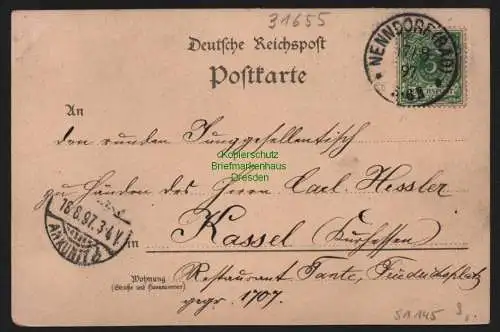 31655
Deutsche Reichspost
Postkarte
NENNDORF (BAD)
97
An
den runden Junggesellentisch
Kopierschutz
Briefmarkenhaus
Dresden
zu Händen des Herrn Carl Hessler
in Kassel (Kurhessen)
Restaurant Tante, Friedrichsplatz
Wohnung
(Straße und Hausnummer)
gegr. 1707.
16.8.97. 3-4 V.
S1145